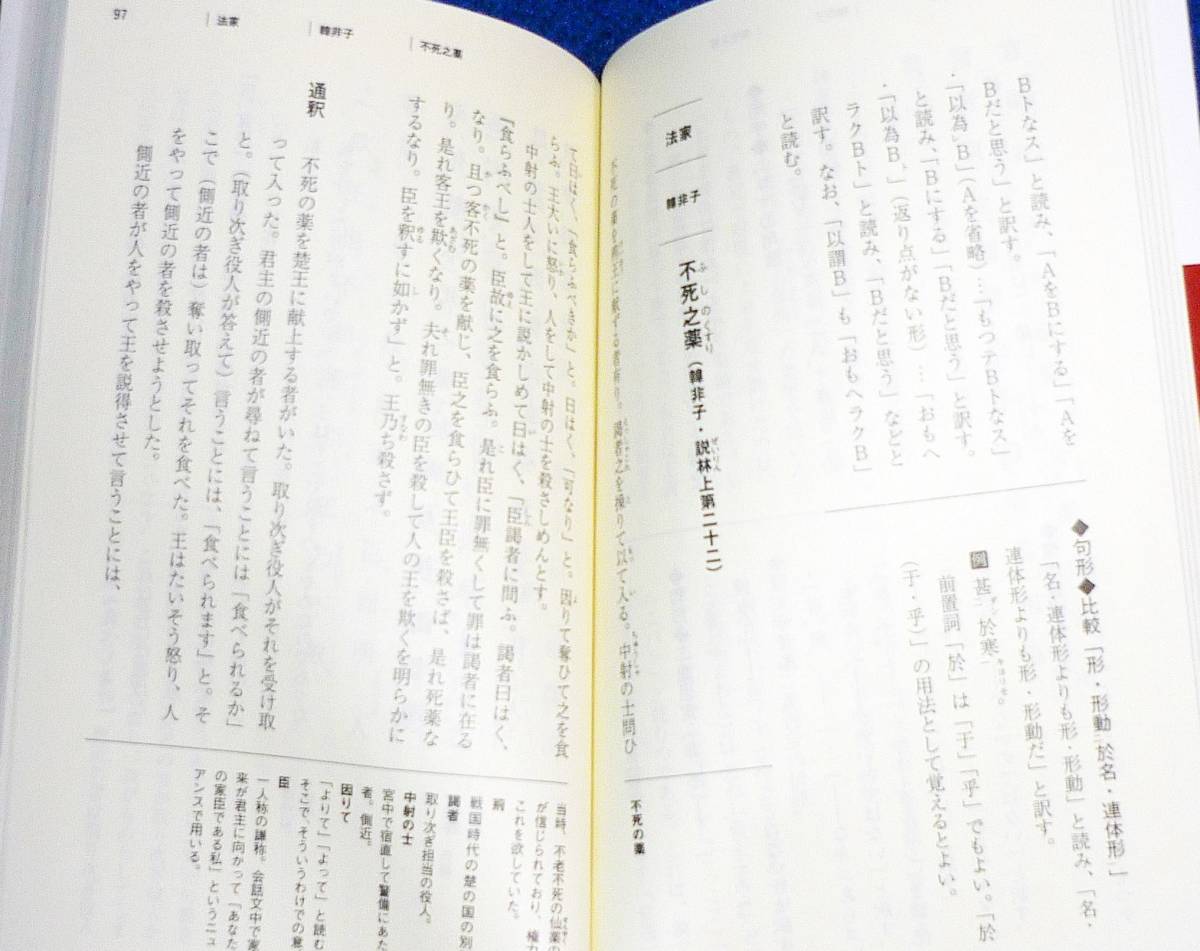 Bトなス」と読み、「AをBにする」「Aを
Bだと思う」と訳す。
・「以為B」(Aを省略)…「もつテBトなス」
と読み、「Bにする」「Bだと思う」と訳す。
・「以為B、」(返り点がない形)…「おもヘ
ラクBト」と読み、「Bだと思う」などと
訳す。なお、「以謂B」も「おもヘラクB」
と読む。
◆句形◆比較「形・形動於名・連体形」
「名・連体形よりも形・形動」と読み、「名・
連体形よりも形・形動だ」と訳す。
例 甚於寒
前置詞「於」は「于」「乎」でもよい。「於
(于・乎)」の用法として覚えるとよい。
法家
韓非子
不死之薬(韓非子・説林上第二十二)
ふしのくすり
ぜいりん
不死の薬を荊王に献ずる者有り。謁者之を操りて以て入る。中射の士問ひ
不死の薬
97
法家
韓非子
不死之薬
て曰はく、「食らふべきか」と。曰はく、「可なり」と。因りて奪ひて之を食
らふ。王大いに怒り、人をして中射の士を殺さしめんとす。
中射の士人をして王に説かしめて曰はく、「臣謁者に問ふ。謁者曰はく、
『食らふべし』と。臣故に之を食らふ。是れ臣に罪無くして罪は謁者に在る
なり。且つ客不死の薬を献じ、臣之を食らひて王臣を殺さば、是れ死薬な
り。是れ客王を欺くなり。夫れ罪無きの臣を殺して人の王を欺くを明らかに
するなり。臣を釈すに如かず」と。王乃ち殺さず。
通釈
不死の薬を楚王に献上する者がいた。取り次ぎ役人がそれを受け取
って入った。君主の側近の者が尋ねて言うことには「食べられるか」
と。(取り次ぎ役人が答えて)言うことには、「食べられます」と。そ
こで(側近の者は)奪い取ってそれを食べた。王はたいそう怒り、人
をやって側近の者を殺させようとした。
側近の者が人をやって王を説得させて言うことには、
当時、不老不死の仙薬の
が信じられており、権力
これを欲していた。
荊
戦国時代の楚の国の別
謁者
取り次ぎ担当の役人。
中射の士
宮中で宿直して警備にあた
者。側近。
因りて
「よりて」「よって」と読む
そこで、そういうわけでの意
臣
一人称の謙称。会話文中で家
来が君主に向かって「あなた
の家臣である私」というニュ
アンスで用いる。